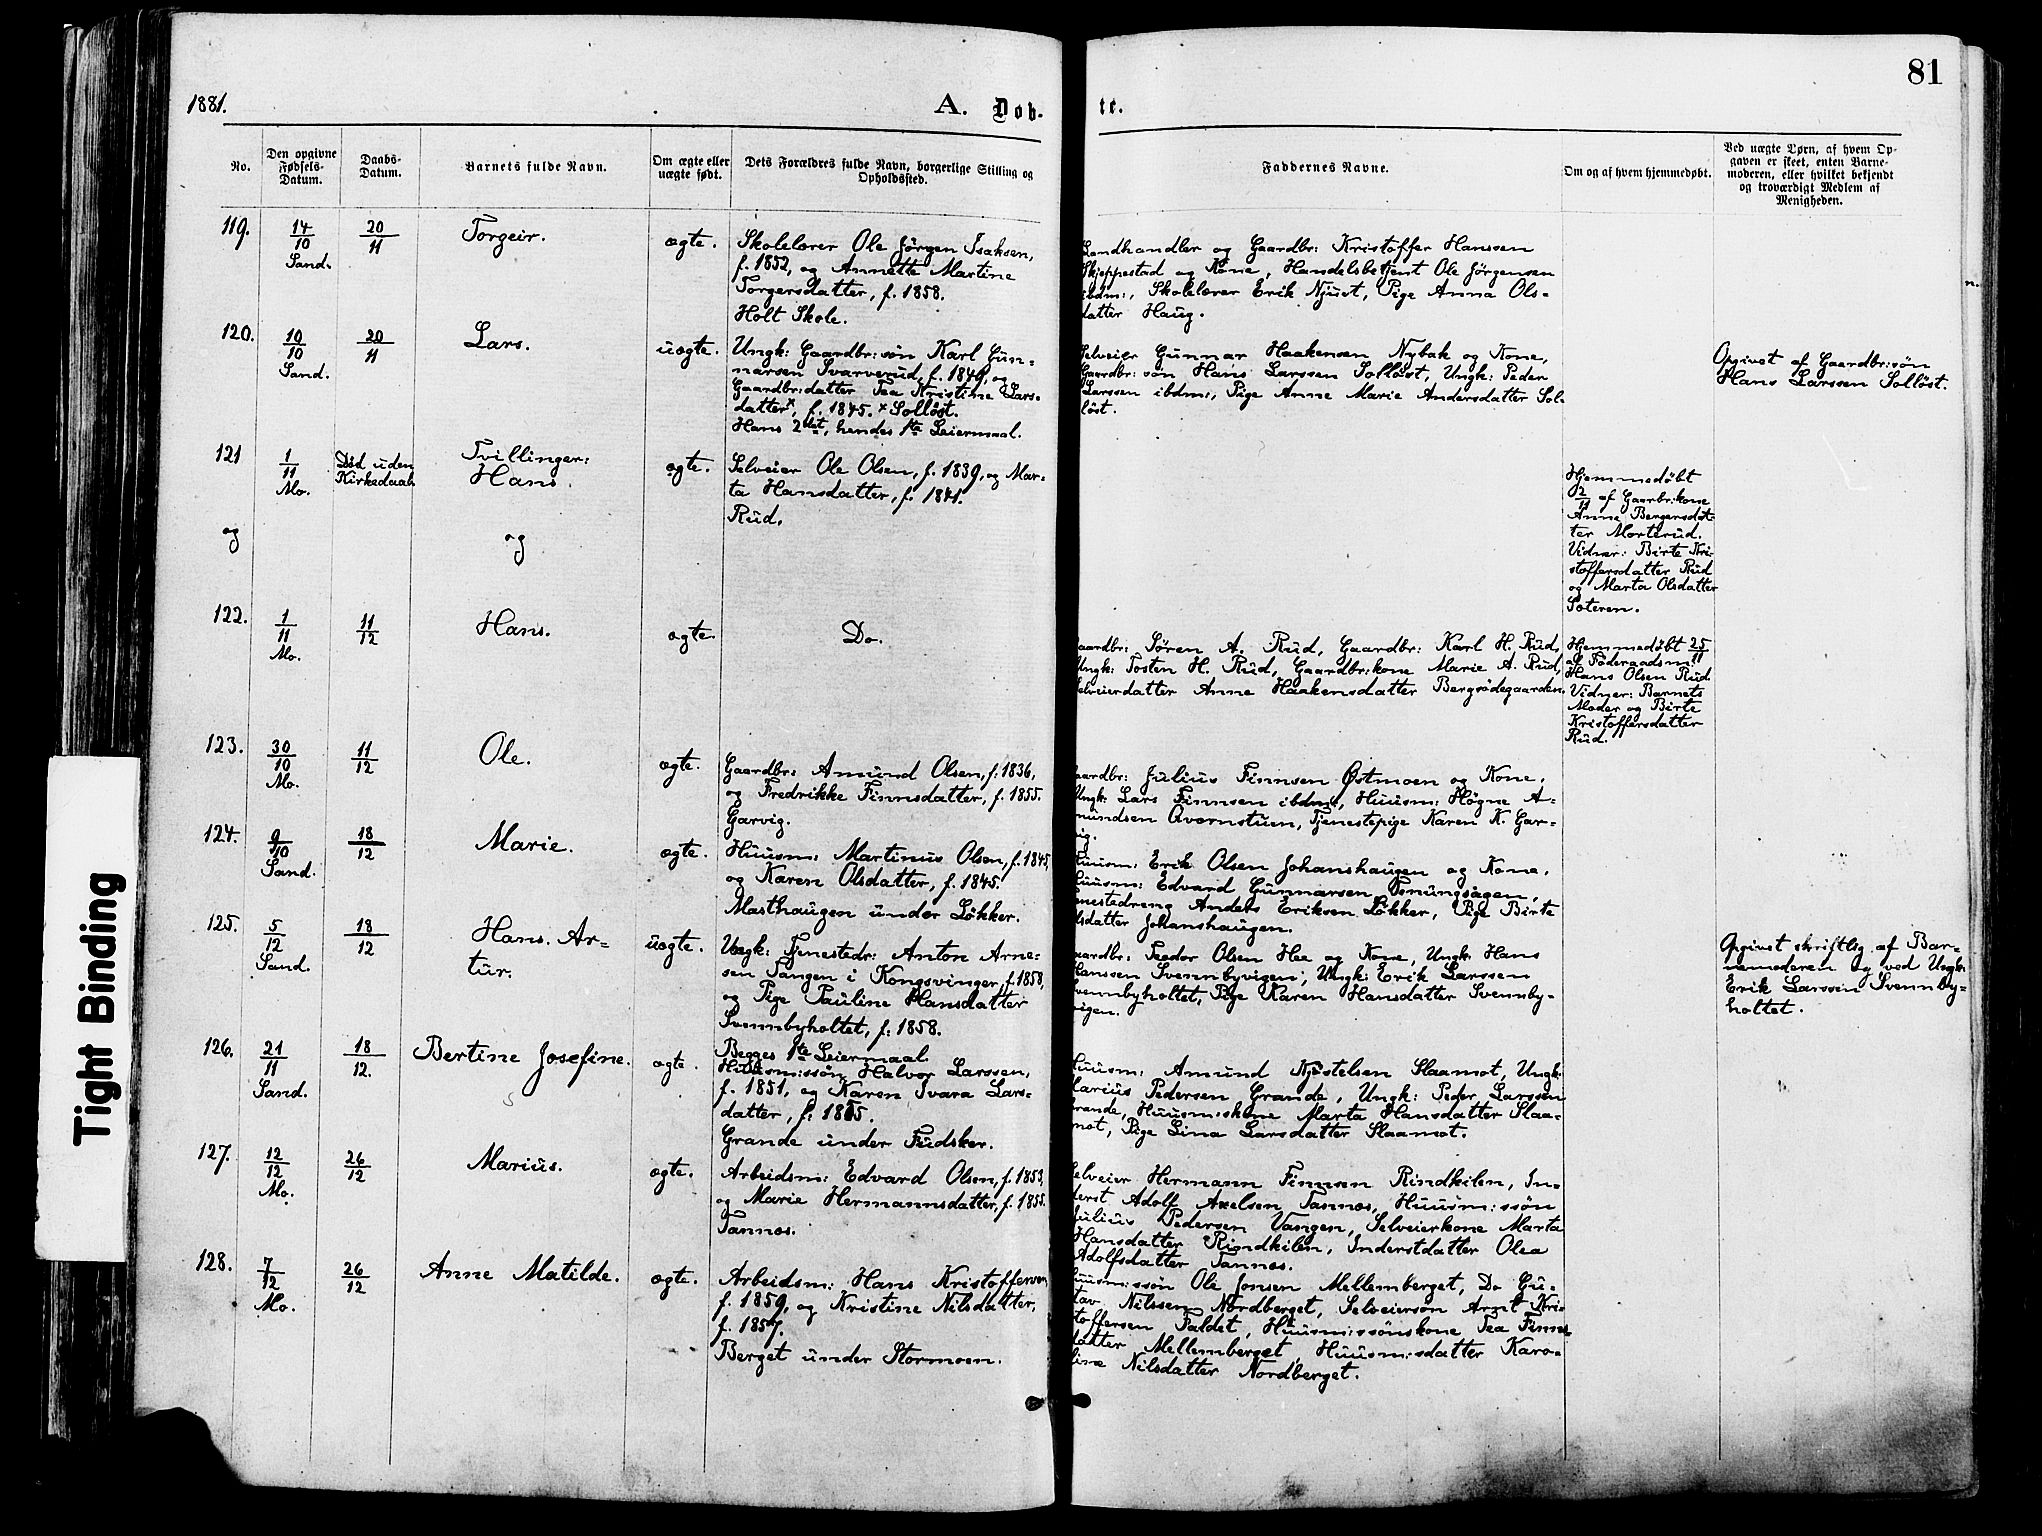 81
1881.
A. Døb-
te.
No.
Den opgivne
Fødsels-
Datum.
Daabs-
Datum.
Barnets fulde Navn.
Om ægte eller
uægte født.
Dets Forældres fulde Navn, borgerlige Stilling og
Opholdssted.
Faddernes Navne.
Om og af hvem hjemmedøbt.
Ved uægte Børn, af hvem Op-
gaven er skeet, enten Barne-
moderen, eller hvilket bekjendt
og troværdigt Medlem af
Menigheden.
119.
14/10
Sand.
20/11
Torgeir.
ægte.
Skolelærer Ole Jörgen Isaksen,
f. 1852, og Annette Martine
Torgersdatter, f. 1858.
Holt Skole.
Landhandler og Gaardbr: Kristoffer Hanssen
Skjeppestad og Kone, Handelsbetjent Ole Jörgensen
ibdm:, Skolelærer Erik Njust, Pige Anna Ols-
datter Haug.
120.
10/10
Sand.
20/11
Lars.
uægte.
Ungk: Gaardbr: søn Karl Gun-
narsen Svarverud, f. 1849, og
Gaardbr: datter Tea Kristine Lars-
datter x, f. 1845. x Solløst.
Hans 2det, hendes 1te Leiermaal.
Selveier Gunnar Haakensen Nybak og Kone,
Gaardbr: søn Hans Larssen Solløst, Ungk: Peder
Larssen ibdm:, Pige Anne Marie Andersdatter Sol-
løst.
Opgivet af Gaardbr: søn
Hans Larssen Solløst.
121
1/11
Mo.
Død uden
Kirkedaab
Tvillinger:
Hans.
ægte.
Selveier Ole Olsen, f. 1839, og Mar-
ta Hansdatter, f. 1841.
Rud.
Hjemmedøbt
2/11 af Gaarbr: kone
Anne Bergersdat-
ter Morterud.
Vidner: Birte Kri-
stoffersdatter Rud
og Marta Olsdatter
Sæteren.
og
og
122.
1/11
Mo.
11/12
Hans.
ægte.
Do.
Gaardbr: Sören A. Rud, Gaardbr: Karl H. Rud,
Ungk: Tosten H. Rud, Gaardbr: kone Marie A. Rud,
Selveierdatter Anne Haakensdatter Bergsødegaarden.
Hjemmedøbt 25/11
af Føderaadsm:
Hans Olsen Rud.
Vidner: Barnets
Moder og Birte
Kristoffersdatter
Rud.
123.
30/10
Mo.
11/12
Ole.
ægte.
Gaardbr: Amund Olsen, f. 1836,
og Fredrikke Finnsdatter, f. 1855.
Garvig.
Gaardbr: Julius Finnsen Østmoen og Kone,
Ungk: Lars Finnsen ibdm:, Huusm: Högne A-
mundsen Qværnstuen, Tjenestepige Karen K. Gar-
vig.
124.
9/10
Sand.
18/12
Marie.
ægte.
Huusm: Martinus Olsen, f. 1845,
og Karen Olsdatter, f. 1845.
Masthaugen under Løkker.
Huusm: Erik Olsen Johanshaugen og Kone,
Huusm: Edvard Gunnarsen
Tjenestedreng Anders Eriksen Løkker, Pige Birte
Olsdatter Johanshaugen.
125.
5/12
Sand.
18/12
Hans Ar-
tur.
uægte.
Ungk: Tjenestedr: Anton Arne-
sen Tangen i Kongsvinger, f. 1858,
og Pige Pauline Hansdatter
Svennbyholtet, f. 1858.
Begges 1te Leiermaal.
Gaardbr: Teodor Olsen Hee og Kone, Ungk: Hans
Hanssen Svennbyvigen, Ungk: Erik Larssen
Svennbyholtet, Pige Karen Hansdatter Svennby-
vigen.
Opgivet skriftlig af Bar-
nemoderen og ved Ungk:
Erik Larssen Svennby-
holtet.
126.
21/11
Sand.
18/12.
Bertine Josefine.
ægte.
Huusm: søn Halvor Larssen,
f. 1851, og Karen Svara Lars-
datter, f. 1855.
Grande under Fudsker.
Huusm: Amund Njøstelsen Slaamot, Ungk:
Marius Pedersen Grande, Ungk: Peder Larssen
Grande, Huusm: skone Marta Hansdatter Slaa-
mot, Pige Lina Larsdatter Slaamot.
127.
12/12
Mo.
26/12
Marius.
ægte.
Arbeidsm: Edvard Olsen, f. 1853,
og Marie Hermannsdatter, f. 1855.
Tannæs.
Selveier Hermann Finnsen Rindkilen, In-
derst Adolf Axelsen Tannæs, Huusm: ssøn
Julius Pedersen Vangen, Selveierkone Marta
Hansdatter Rindkilen, Inderstdatter Olea
Adolfsdatter Tannæs.
128.
7/12
Mo.
26/12
Anne Matilde.
ægte.
Arbeidsm: Hans Kristoffersen,
f. 1859, og Kristine Nilsdatter,
f. 1857.
Berget under Stormoen.
Huusm: ssøn Ole Jonsen Mellemberget, Do Gu-
stav Nilssen Nordberget, Selveiersøn Arnt Kri-
stoffersen Faldet, Huusm: ssønskone Tea Finns-
datter Mellemberget, Huusm: sdatter Karo-
line Nilsdatter Nordberget.
Tight Binding